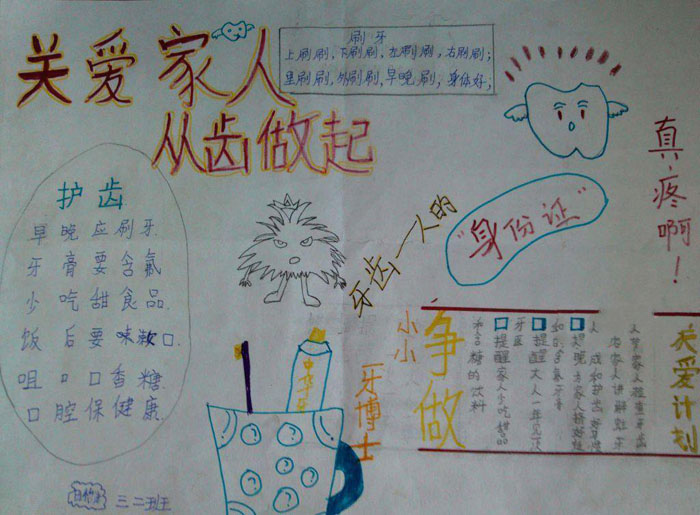 关爱家人
从齿做起
刷牙
上刷刷，下刷刷，左刷刷，右刷刷；
里刷刷，外刷刷，早晚刷，身体好，
真疼啊！
护齿
早晚应刷牙
牙膏要含氟
少吃甜食品
饭后要漱口
咀口口香糖
口腔保健康
牙齿一人的
“身份证”
争做
小小
牙博士
关爱计划
提醒大人一年
提醒家人少吃甜品
和含糖的饮料
三二班